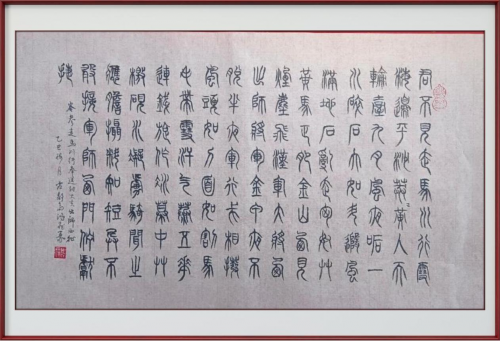 君不見走馬川行雪
海邊平沙莽〻黃入天
輪臺九月風夜吼一
川碎石大如斗隨風
滿地石亂走匈奴草
黃馬正肥金山西見
煙塵飛漢家大將西
出師將軍金甲夜不
脫半夜軍行戈相撥
風頭如刀面如割馬
毛帶雪汗氣蒸五花
連錢旋作冰幕中草
檄硯水凝虜騎聞之
應膽攝料知短兵不
敢接軍師西門佇獻
捷
岑參走馬川行奉送封大夫出師西征
乙巳秋月